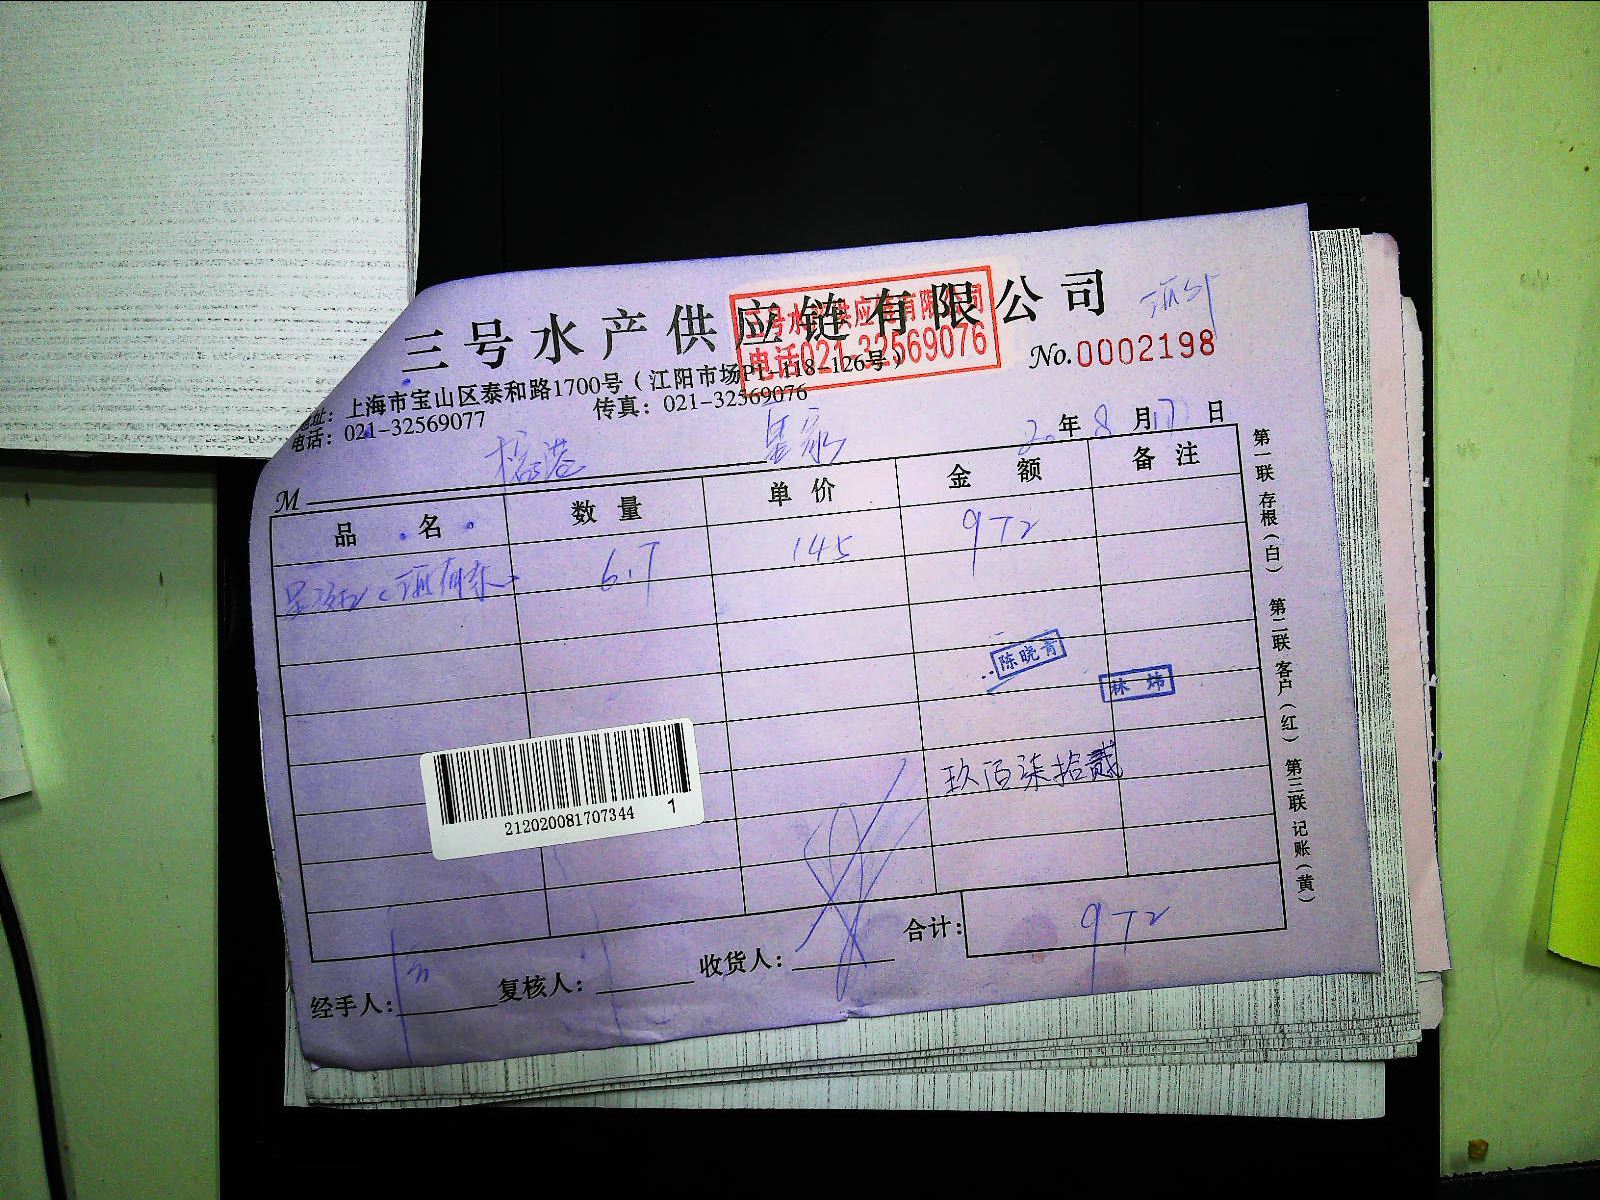 三号水产供应链有限公司
三号水产供应链有限公司
电话021-32569076
No.0002198
地址：上海市宝山区泰和路1700号（江阳市场P1-118-126号）
电话：021-32569077 传真：021-32569076
20年8月17日
M
品名 数量 单价 金额 备注
6.7 145 972
陈晓青
林炜
玖佰柒拾贰
212020081707344 1
合计：972
经手人： 复核人： 收货人：
第一联存根（白） 第二联客户（红） 第三联记账（黄）